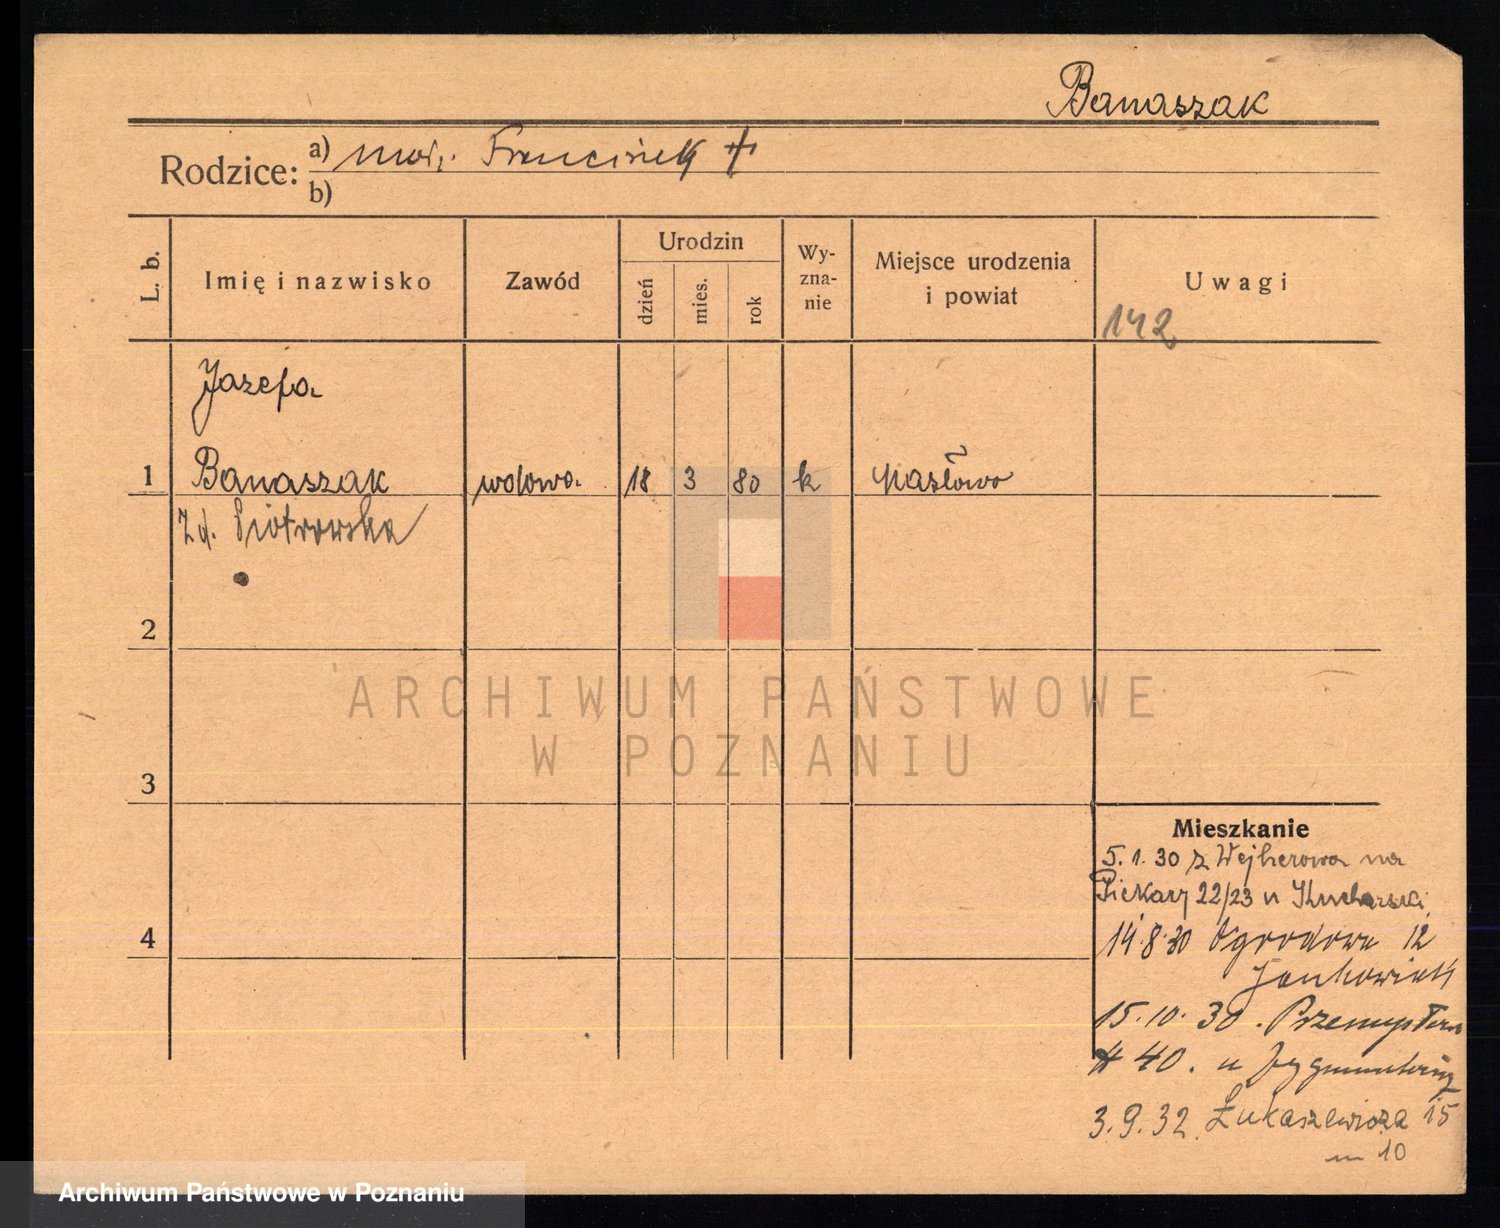 Banaszak
Rodzice: a) mąż. Franciszek +
b)
L. b. Imię i nazwisko Zawód Urodzin dzień mies. rok Wyznanie Miejsce urodzenia i powiat Uwagi
142
Józefa
1 Banaszak wdowa 18 3 80 k Masłowo
Zd. Piotrowska
2
ARCHIWUM PAŃSTWOWE
W POZNANIU
3
Mieszkanie
5.1.30 z Wejherowa na
Piekary 22/23 u Kucharski
4
14.8.30 Ogrodowa 12
Jankowiak
15.10.30. Przemysłowa
40. u
3.9.32. Łukaszewicza 15
m 10
Archiwum Państwowe w Poznaniu